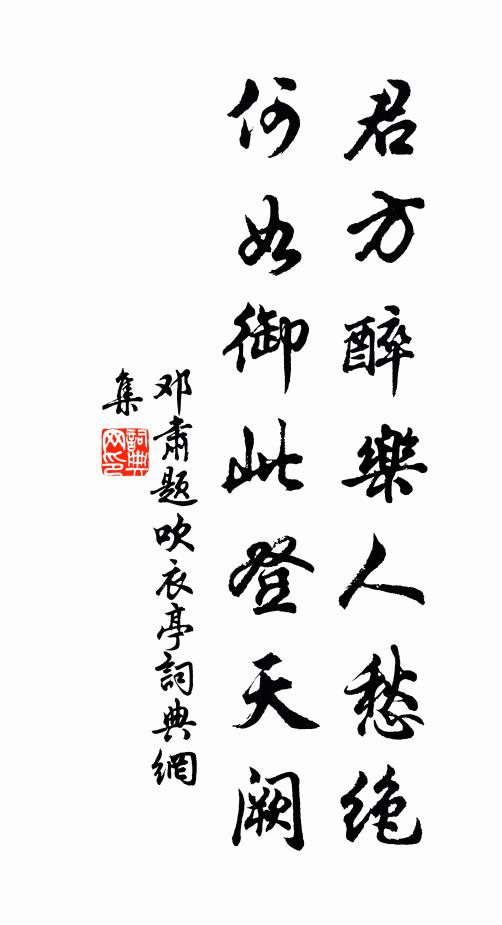 君方醉樂人愁絶
何如御此登天闕
邓肅題吹衣亭詞典網
集
詞典
网印